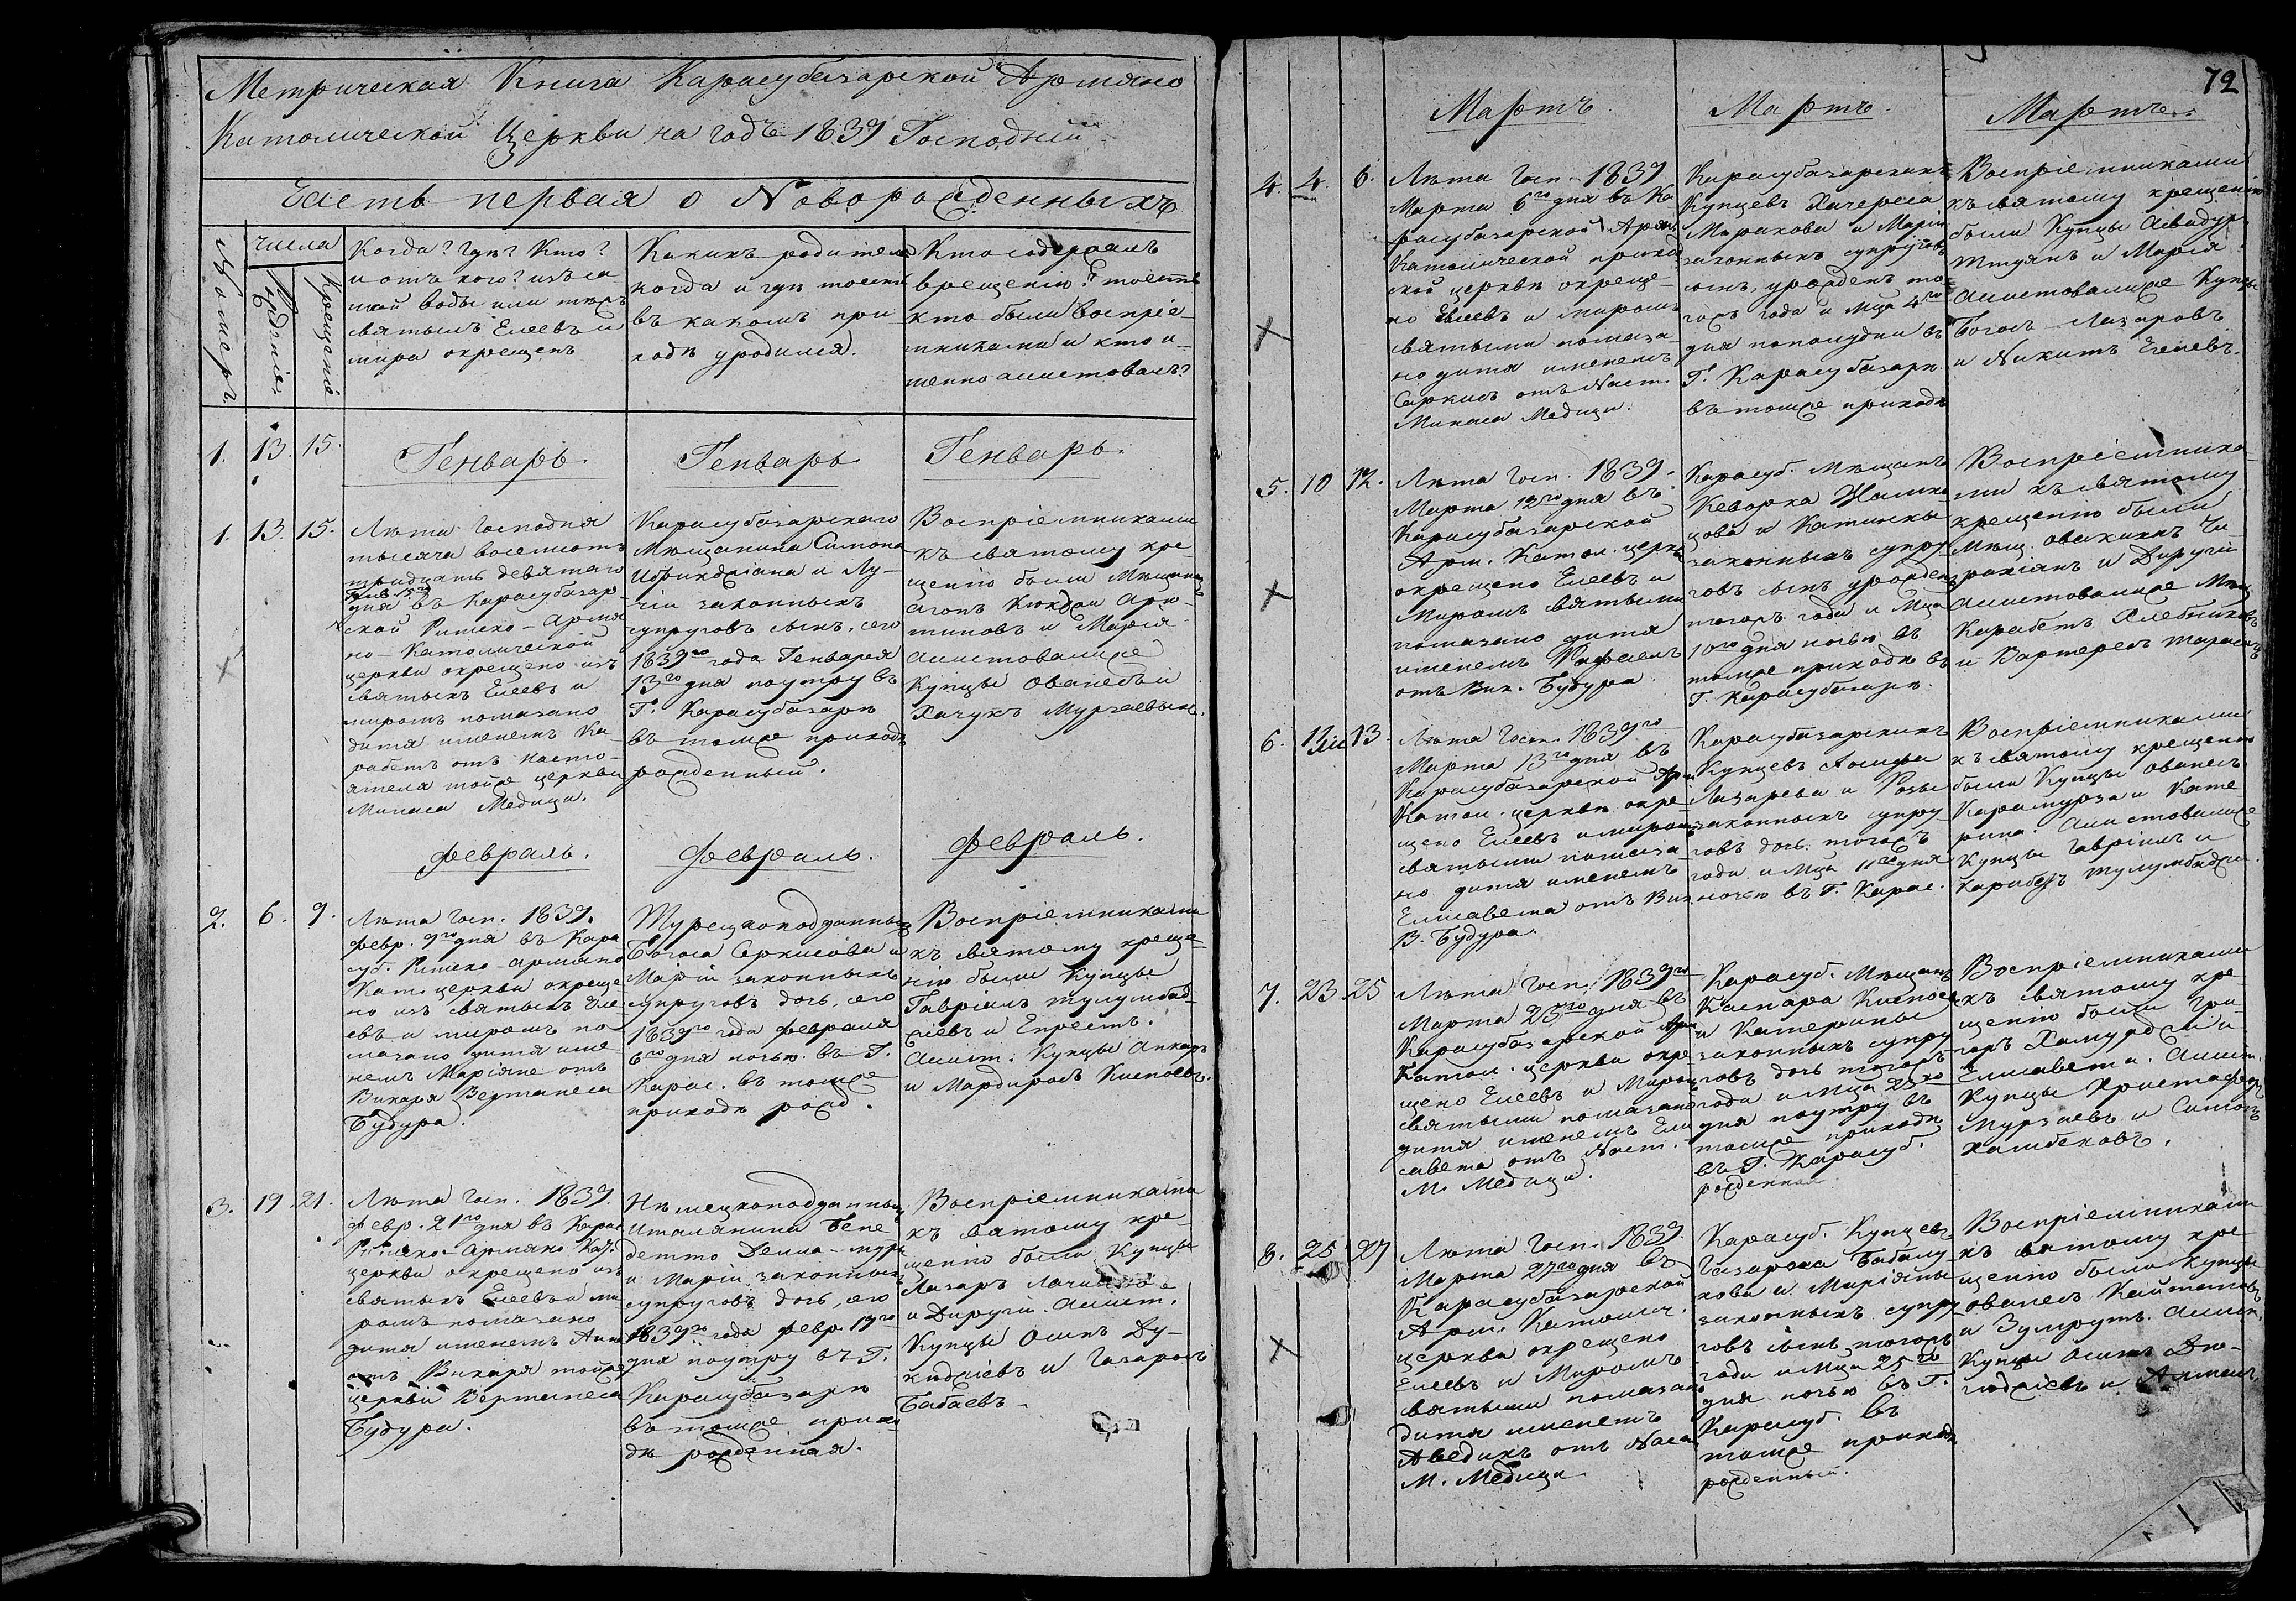 Метрическая Книга Карасубазарской Армяно
Католической Церкви на годъ 1839 Господній
Часть первая о Новорожденныхъ
Номеръ
числа
Рожденія
Крещенія
Когда? Гдѣ? Кто?
и отъ кого? изъ са
мой воды или тѣхъ
святымъ Елеевъ и
мѵра окрещенъ
Какихъ родителей
когда и гдѣ тоесть
въ какомъ при
ходѣ уродился.
Кто содержалъ
крещенію? тоесть
кто были воспріе-
мниками и кто и-
менно асистовалъ?
1. 13. 15.
Генварь. Генварь Генварь.
1. 13. 15.
Лѣта Господня
тысяча восемьсотъ
тридцать девятаго
Генв. 15го
дня въ Карасубазар
ской Римско-Армя
но-Католической
церкви окрещено изъ
святыхъ Елеевъ и
миромъ помазано
дитя именемъ Ка-
рабетъ отъ Насто-
ятеля тойже церкви
Минаса Медици.
Карасубазарскаго
Мѣщанина Симона
и Лу-
ціи законныхъ
супруговъ сынъ, сего
1839го года Генваря
13го дня поутру въ
Г. Карасубазарѣ
въ томже приходѣ
рожденный.
Воспріемниками
къ святому кре-
щенію были Мѣщанинъ
Агопъ
и Марія
Асистовалиже
Купцы Ованесъ и
Хачукъ Мурзаевы.
Февраль. Февраль. Февраль.
2. 6. 9.
Лѣта Госп. 1839.
Февр. 9го дня въ Кара
суб. Римско-Армяно
Кат. церкви окреще
но изъ святыхъ Еле
евъ и миромъ по-
мазано дитя име
немъ Маріяне отъ
Викаря Вертанеса
Будура.
Турецкоподданныхъ
Богоса Серкисова и
Маріи законныхъ
супруговъ дочь, сего
1839го года Февраля
6го дня ночью въ Г.
Карас. въ томже
приходѣ рожд.
Воспріемниками
къ святому креще-
нію были Купцы
Гавріилъ Тулумбад-
жіевъ и Епресть.
Асист: Купцы Аккаръ
и Мардиросъ Киспоевъ.
3. 19. 21.
Лѣта Госп. 1839.
Февр. 21го дня въ Карас
Римско-Армяно Кат.
церкви окрещено изъ
святыхъ Елеевъ и ми
ромъ помазано
дитя именемъ Анна
отъ Викаря тойже
церкви Вертанеса
Будура.
Нѣмецкоподданныхъ
Италянина Бене
детто Делла-
и Маріи законныхъ
супруговъ дочь, сего
1839го года Февр. 19го
дня поутру въ Г.
Карасубазарѣ
въ томже прихо
дѣ рожденная.
Воспріемниками
къ святому кре-
щенію были Купцы
Лазаръ
и Дируги. Асист.
Купцы Осипъ Ду-
и Газаросъ
Бабаевъ.
72
Мартъ. Мартъ. Мартъ.
4. 4. 6.
Лѣта Госп. 1839
Марта 6го дня въ Ка-
расубазарской Армян
Католической приход
ской церкви окреще-
но Елеевъ и миромъ
святыми помаза-
но дитя именемъ
Саркисъ отъ Наст.
Минаса Медици.
Карасубазарскихъ
Купцевъ Хачереса
Маракова и Маріи
законныхъ супруговъ
сынъ, урожденъ то-
гожъ года и Мца 4го
дня пополудни въ
Г. Карасубазарѣ
въ томже приходѣ
Воспріемниками
къ святому крещенію
были Купцы Асвадуръ
и Марія
Асистовалиже Купцы
Богосъ Лазаровъ
и Никитъ
5. 10 12.
Лѣта Госп. 1839.
Марта 12го дня въ
Карасубазарской
Арм. Катол. церкв
окрещено Елеевъ и
Миромъ святыми
помазано дитя
именемъ Рафаелъ
отъ Вик. Будура.
Карасуб. Мѣщанъ
Кеворка
цова и Катинки
законныхъ супру
говъ сынъ урожденъ
тогожъ года и Мца
10го дня ночью въ
томже приходѣ въ
Г. Карасубазарѣ.
Воспріемника-
ми къ святому
крещенію были
Мѣщ. Овакимъ Чи-
и Дируги
Асистовалиже Мѣщ
Карабетъ Хлебниковъ
и Вартересъ
6. 11 13.
Лѣта Госп. 1839го
Марта 13го дня въ
Карасубазарской Арм
Катол. церквѣ окре-
щено Елеевъ и миромъ
святыми помаза-
но дитя именемъ
Елисавета отъ Вик
В. Будура.
Карасубазарскихъ
Купцевъ Іосифа
Лазарева и Розы
законныхъ супру
говъ дочь тогожъ
года и Мца 11го дня
ночью въ Г. Карас.
Воспріемниками
къ святому крещенію
были Купцы Ованесъ
Карамурза и Кате
рина. Асистовалиже
Купцы Гавріилъ и
Карабетъ Тулумбаджи.
7. 23 25
Лѣта Госп. 1839го
Марта 25го дня въ
Карасубазарской Арм
Катол. церкви окре
щено Елеевъ и Миромъ
святыми помазано
дитя именемъ Ели
савета отъ Наст.
М. Медици.
Карасуб. Мѣщанъ
Каспара Киспоев
и Катерины
законныхъ супру
говъ дочь тогожъ
года и Мца 23го
дня поутру въ
томже приходѣ
въ Г. Карасуб.
рожденная
Воспріемниками
къ святому кре-
щенію были Гри-
горъ и
Елисавета. Асист.
Купцы Христафоръ
Мурзаевъ и Симонъ
Халибековъ.
8. 25 27
Лѣта Госп. 1839.
Марта 27го дня въ
Карасубазарской
Арм. Католич.
церкви окрещено
Елеевъ и Миромъ
святыми помазано
дитя именемъ
Аведикъ отъ Наст
М. Медици
Карасуб. Купцевъ
Газароса Бабалу
кова и Маріяны
законныхъ супру
говъ сынъ тогожъ
года и Мца 25го
дня ночью въ Г.
Карасуб. въ
томже приходѣ
рожденный.
Воспріемниками
къ святому кре-
щенію были Купцы
Ованесъ
и Зумрутъ. Асист.
Купцы Осипъ Дю-
и